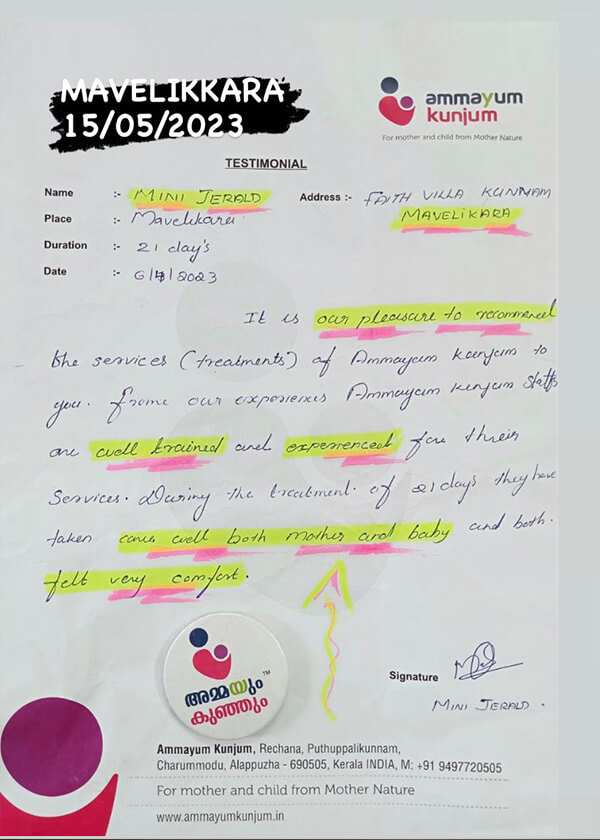 MAVELIKKARA
15/05/2023
ammayum
kunjum
For mother and child from Mother Nature
TESTIMONIAL
Name :- MINI JERALD Address :- FAITH VILLA KUNNAM
Place :- Mavelikara MAVELIKARA
Duration :- 21 day's
Date :- 6/4/2023
It is our pleasure to recommend
the services (treatments) of Ammayum kunjum to
you. Frome our experiences Ammayum kunjum staffs
are well trained and experienced for threir
Services. During the treatment of 21 days they have
taken care well both mother and baby and both.
felt very comfort.
അമ്മയും TM
കുഞ്ഞും
Signature
MINI JERALD.
Ammayum Kunjum, Rechana, Puthuppalikunnam,
Charummodu, Alappuzha - 690505, Kerala INDIA, M: +91 9497720505
For mother and child from Mother Nature
www.ammayumkunjum.in